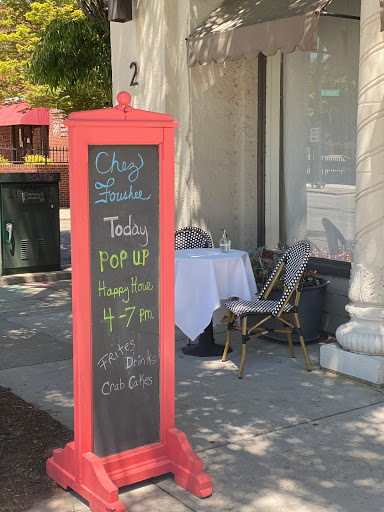 2
Chez
Foushee
Today
POP UP
Happy Hour
4-7pm
Frites Drinks
Crab Cakes